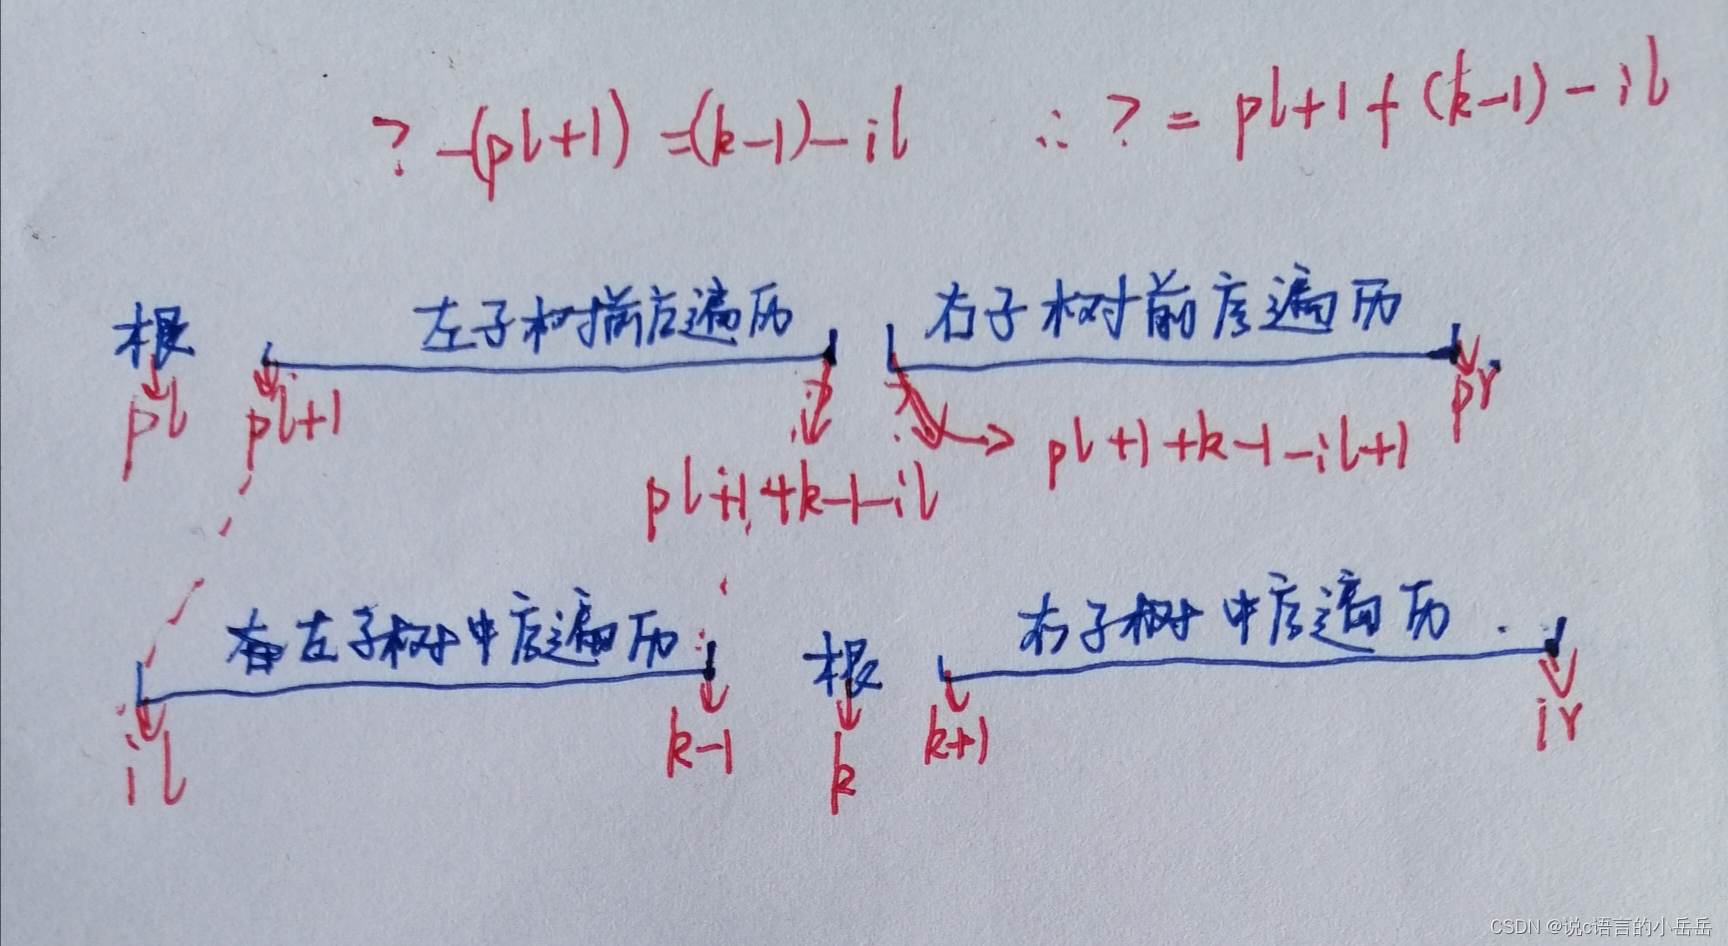 ? -(pl+1) =(k-1)-il ∴ ? = pl+1+(k-1)-il
根 左子树前序遍历 右子树前序遍历
pl pl+1 ? ? pr
pl+1+k-1-il pl+1+k-1-il+1
左子树中序遍历 根 右子树中序遍历
il k-1 k k+1 ir
CSDN @说c语言的小岳岳